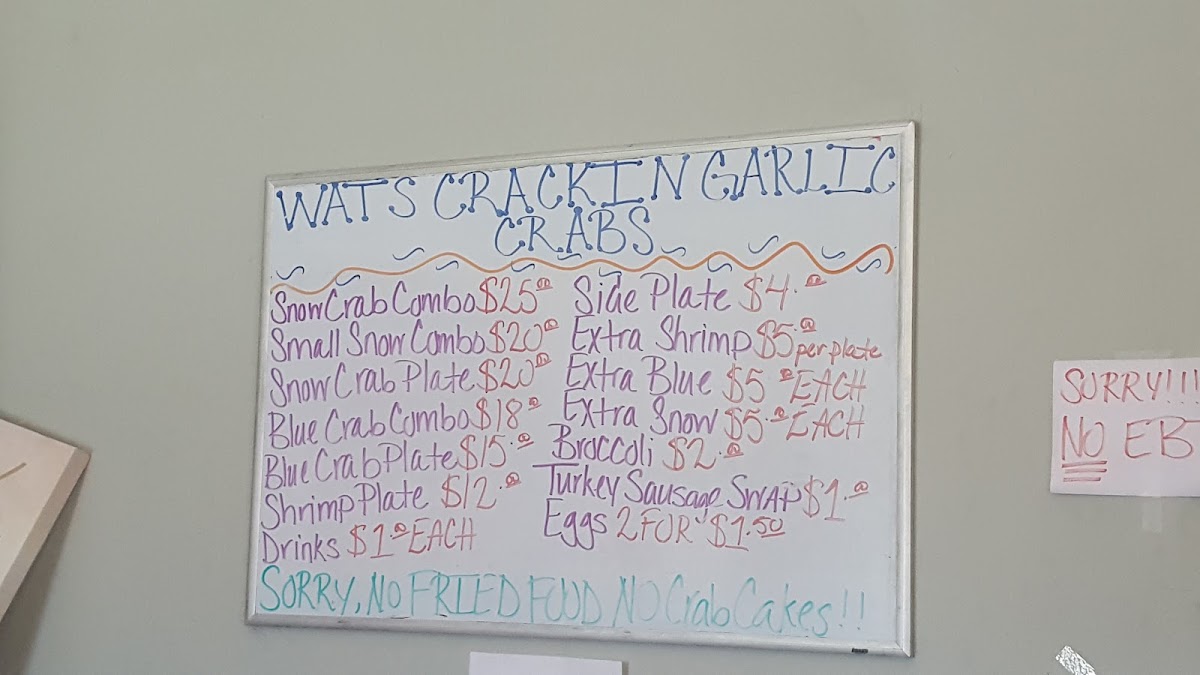 WATS CRACKIN GARLIC
CRABS
Snow Crab Combo $25.00
Small Snow Combo $20.00
Snow Crab Plate $20.00
Blue Crab Combo $18.00
Blue Crab Plate $15.00
Shrimp Plate $12.00
Drinks $1.00 EACH
Side Plate $4.00
Extra Shrimp $5.00 per plate
Extra Blue $5.00 EACH
Extra Snow $5.00 EACH
Broccoli $2.00
Turkey Sausage SWAP $1.00
Eggs 2 FOR $1.50
SORRY, NO FRIED FOOD NO Crab Cakes!!
SORRY!!!
NO EB